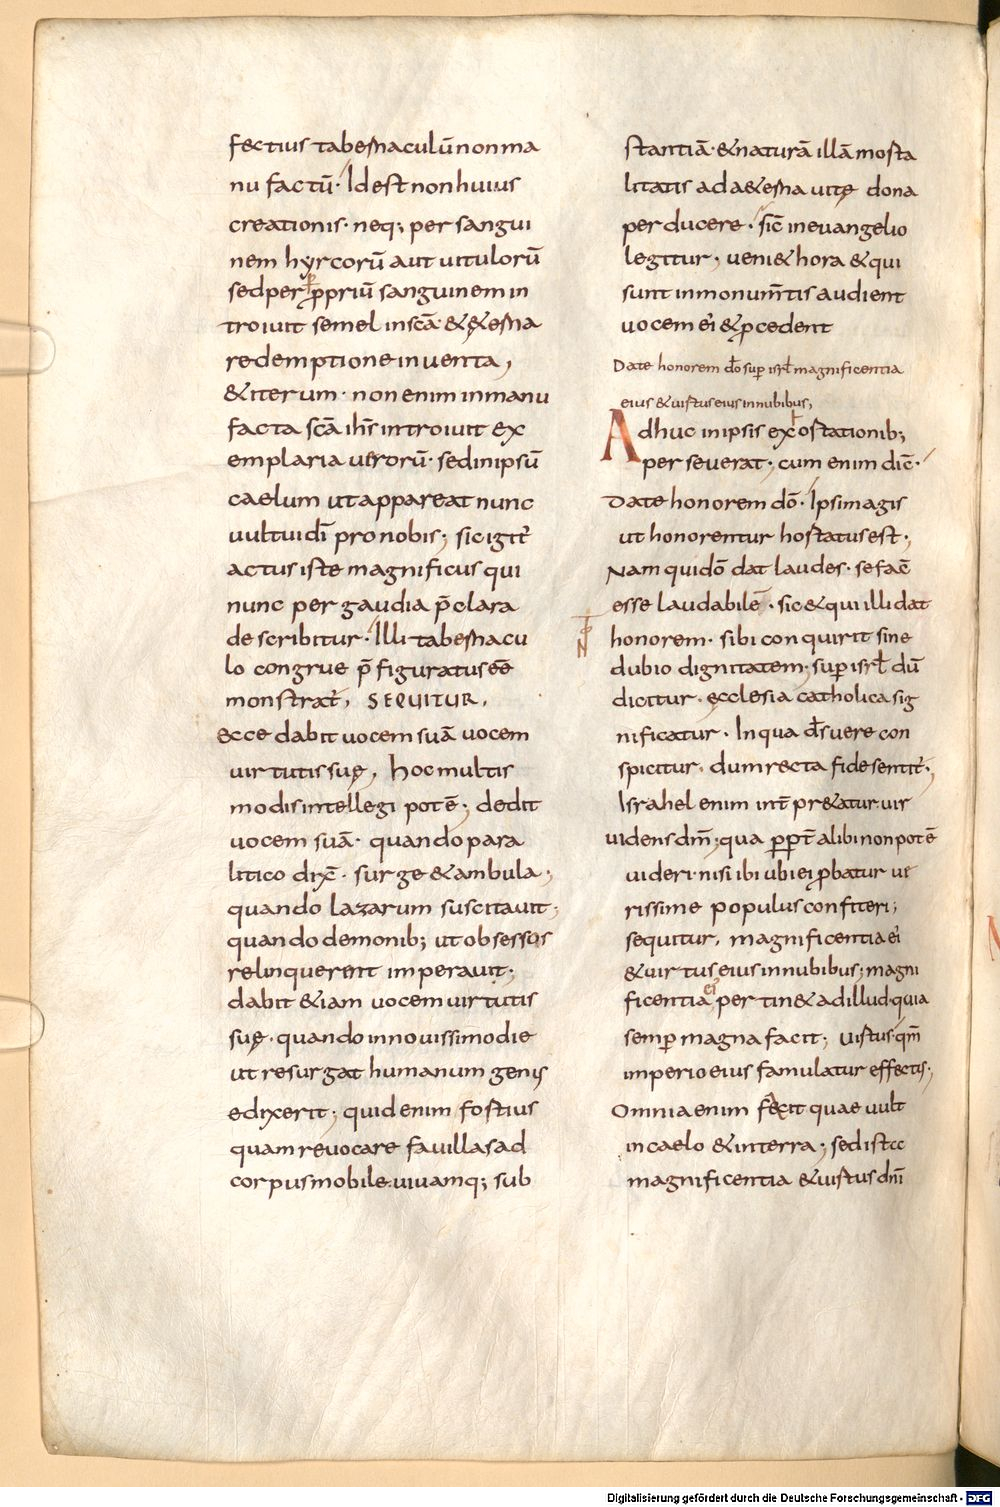 fectius tabernaculū non ma
nu factū· Id est non huius
creationis· neq; per sangui
nem hyrcorū aut uitulorū
sed per ꝓpriū sanguinem in
troiuit semel in scā· & &erna
redemptione inuenta,
& iterum· non enim in manu
facta scā ihs introiuit ex
emplaria uerorū· sed in ipsū
caelum ut appareat nunc
uultui dī pro nobis; sic igit̄
actus iste magnificus qui
nunc per gaudia p̄clara
describitur· Illi tabernacu
lo congrue p̄figuratus eē
monstrat̄, SEQUITUR,
Ecce dabit uocem suā uocem
uirtutis suę, hoc multis
modis intellegi potē; dedit
uocem suā· quando para
litico dix̄· surge & ambula;
quando lazarum suscitauit;
quando demonib; ut obsessos
relinquerent imperauit;
dabit & iam uocem uirtutis
suę· quando in nouissimo die
ut resurgat humanum genus
edixerit; quid enim fortius
quam reuocare fauillas ad
corpus mobile· uiuamq; sub
stantiā· & naturā illā morta
litatis ad a&erna uitę dona
perducere· sic̄ in euangelio
legitur; ueni& hora & qui
sunt in monum̄tis audient
uocem ei & ꝓcedent
Date honorem dō sup isrl magnificentia
eius & uirtus eius in nubibus;
Adhuc in ipsis exortationib;
perseuerat; cum enim dic̄·
Date honorem dō· Ipsi magis
ut honorentur hortatus est;
Nam qui dō dat laudes· se facē
esse laudabilē· sic & qui illi dat
honorem· sibi conquirit sine
dubio dignitatem; sup isrl dū
dicitur· ęcclesia catholica sig
nificatur· In qua ds uere con
spicitur· dum recta fide sentit̄;
Israhel enim int̄pr&atur uir
uidens dm̄; qua ꝓpt̄ alibi non potē
uideri· nisi ibi ubi ei ꝓbatur ue
rissime populus confiteri;
sequitur, magnificentia ei
& uirtus eius in nubibus; magni
ficentia ei pertin& ad illud· quia
semp magna facit; uirtus· qm̄
imperio eius famulatur effectis;
Omnia enim fecit quae uult
in caelo & in terra; sed istae
magnificentia & uirtus dn̄i
Digitalisierung gefördert durch die Deutsche Forschungsgemeinschaft - DFG